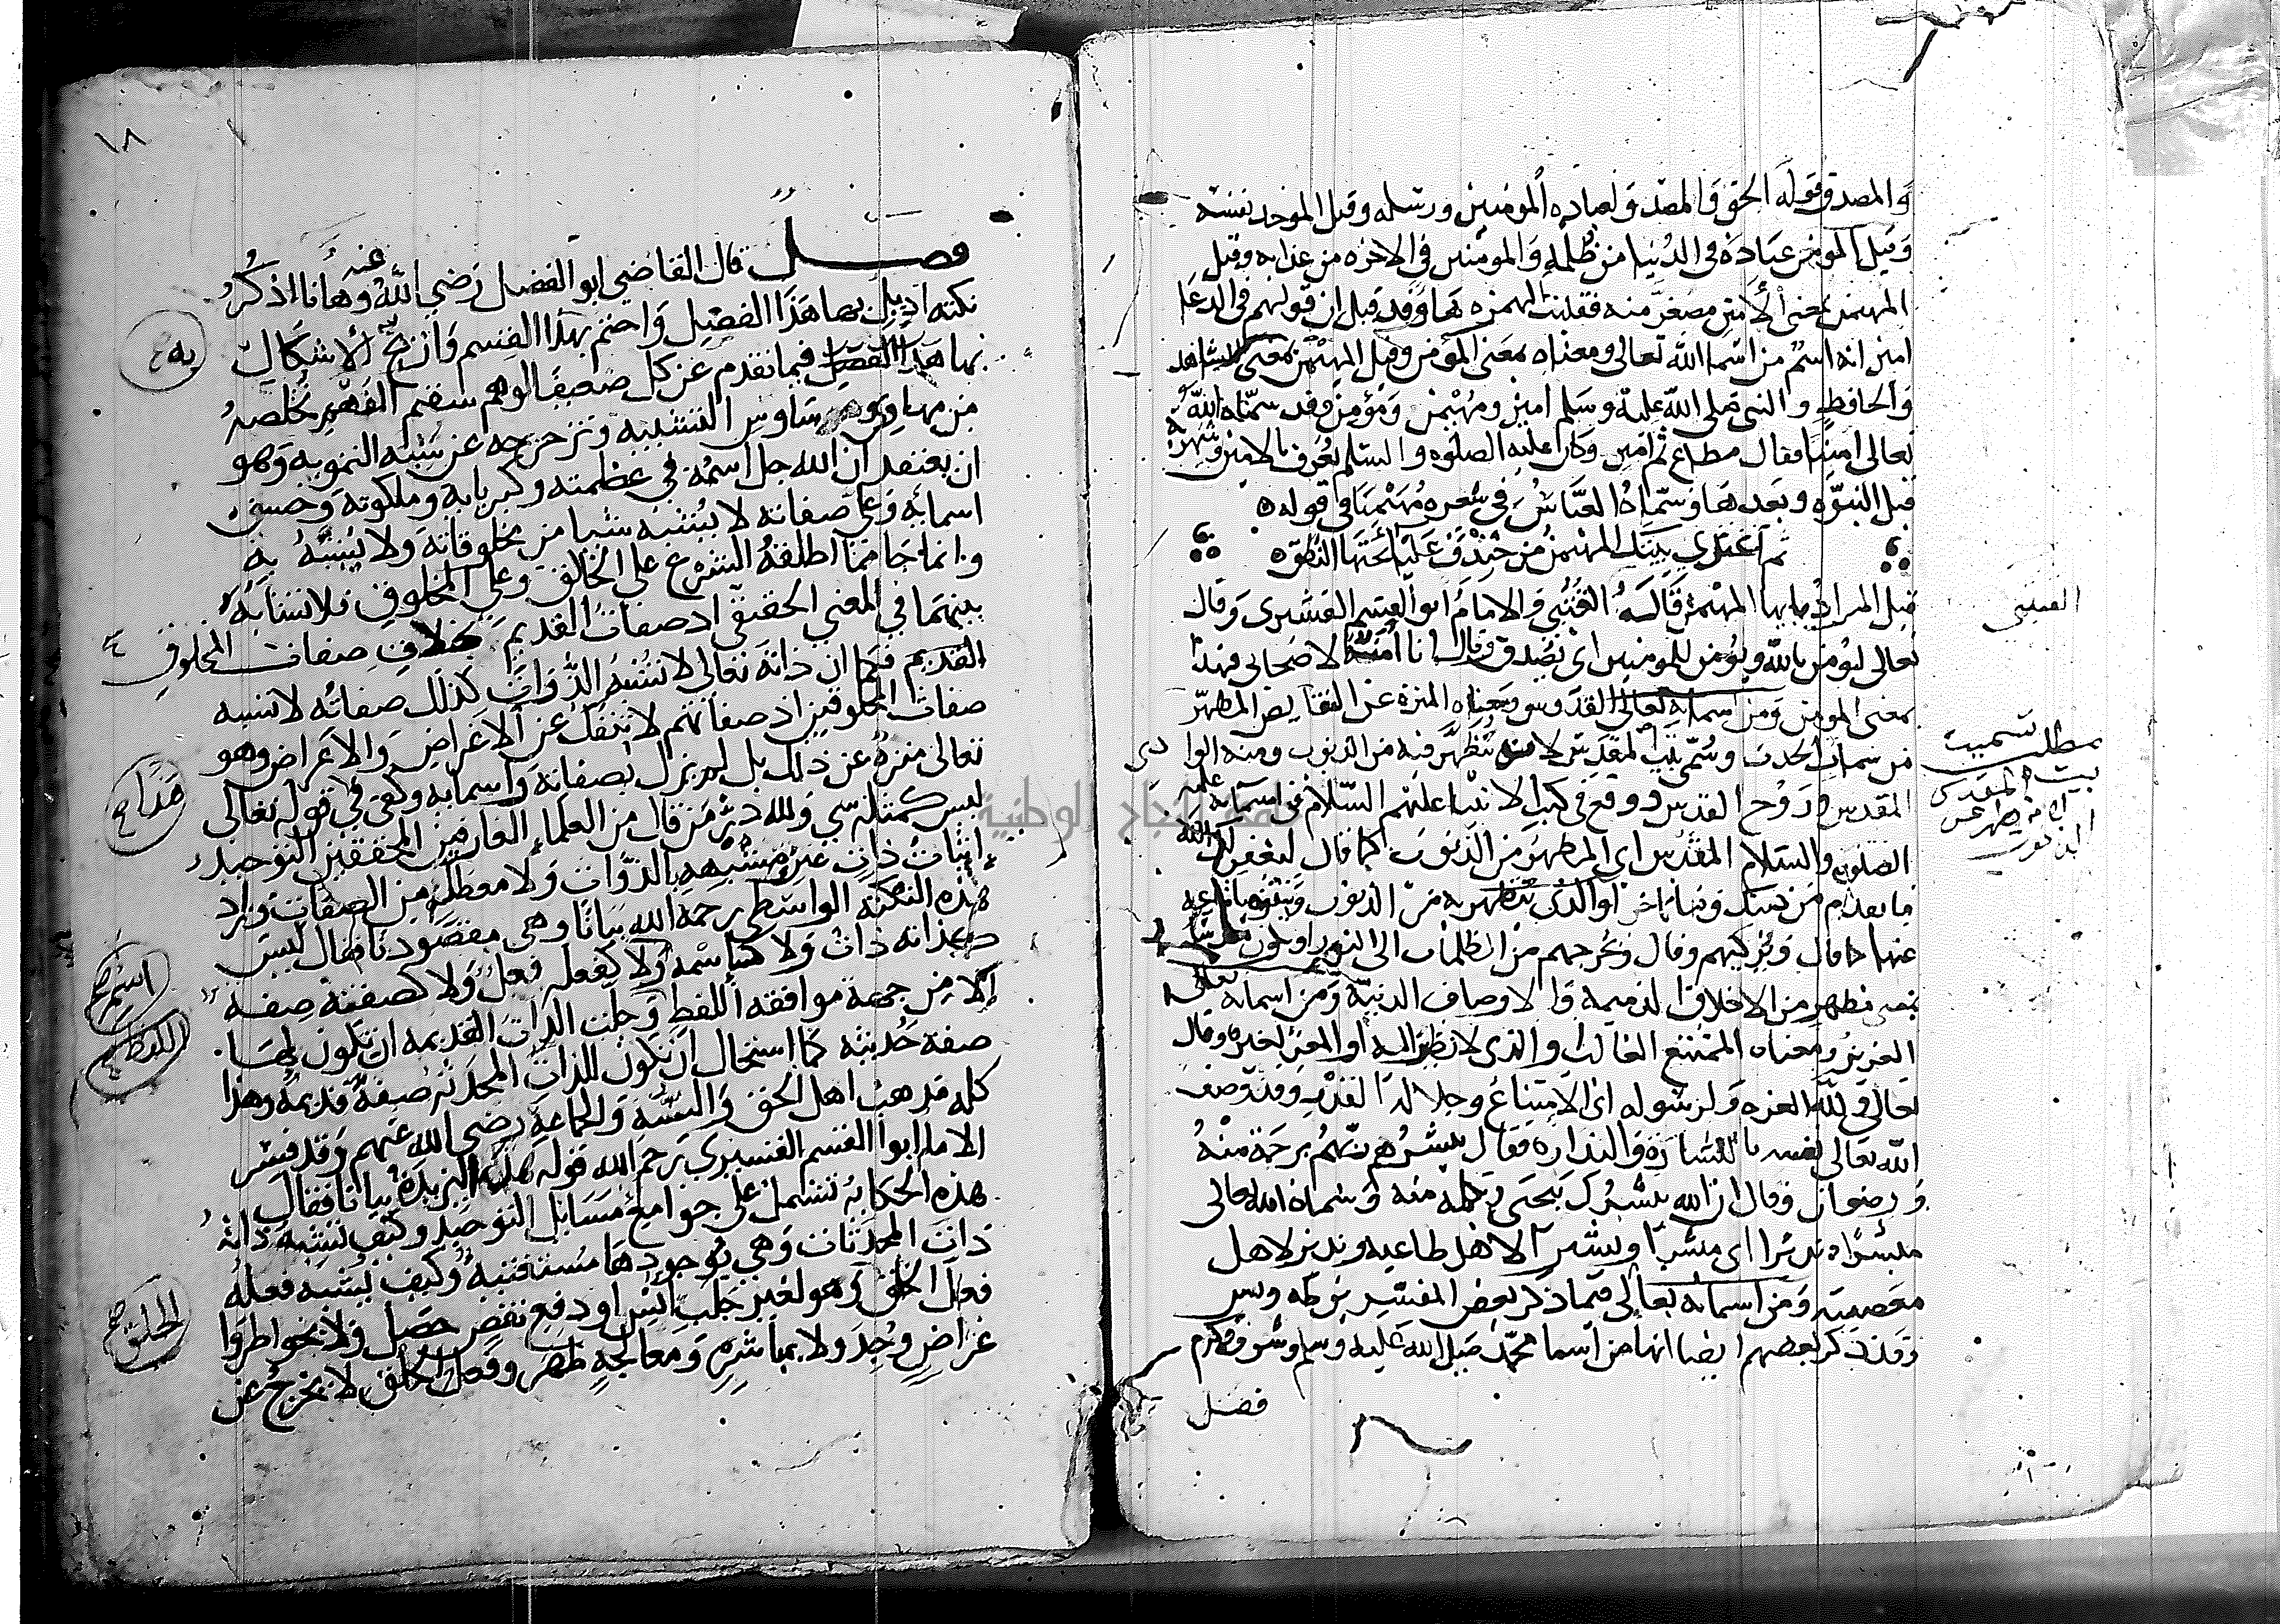 والمصدق قوله الحق والمصدق لعباده المومنين ورسله وقيل الموحد نفسه
وقيل المومن عباده في الدنيا من ظلمه والمومنين في الاخرة من عذابه وقيل
المهيمن بمعنى الامين مصغر منه فقلبت الهمزه ها وقد قيل ان قولهم في الدعا
امين انه اسم من اسما الله تعالى ومعناه بمعنى المؤمن وقيل المهيمن بمعنى الشاهد
والحافظ والنبي صلى الله عليه وسلم امين ومهيمن ومؤمن وقد سماه الله
تعالى امينا فقال مطاع ثم امين وكان عليه الصلوه والسلم يعرف بالامين وشهر به
قبل النبوه وبعدها وسماه العباس في شعره مهيمنا في قوله
ثم اغتدى بيتك المهيمن من خندف عليا تحتها النطق
قيل المراد يا ايها المهيمن قاله القتبي والامام ابو القسم القشيرى وقال
القتيبي
تعالى يؤمن بالله ويؤمن للمومنين اى يصدق وقال انا امنة لاصحابي فهذا
بمعنى المومن ومن اسمائه تعالى القدوس ومعناه المنزه عن النقايص المطهر
من سمات الحدث وسمي بيت المقدس لانه يتطهر فيه من الذنوب ومنه الوادى
مطلب تسميت
بيت المقدس
لانه يطهر من
الذنوب
المقدس وروح القدس ووقع في كتب الانبيا عليهم السلام في اسمائه عليه
الصلوة والسلام المقدس اى المطهر من الذنوب كما قال ليغفر لك الله
ما تقدم من ذنبك وما تاخر او الذى يتطهر به من الذنوب ويتنزه باتباعه
عنها كما قال ويزكيهم وقال ويخرجهم من الظلمات الى النور او يكون مقدسا
بمعنى مطهر من الاخلاق الذميمه والاوصاف الدنية ومن اسمائه تعالى
العزيز ومعناه الممتنع الغالب او الذى لا نظير له او المعز لغيره وقال
تعالى ولله العزه ولرسوله اى الامتناع وجلالة القدر وقد وصف
الله تعالى نفسه بالبشارة والنذارة فقال يبشرهم ربهم برحمة منه
ورضوان وقال ان الله يبشرك بيحيى وبكلمه منه وسماه الله تعالى
مبشرا ونذيرا اى مبشرا وبشيرا لاهل طاعته ونذيرا لاهل
معصيته ومن اسمائه تعالى فيما ذكر بعض المفسرين طه ويس
وقد ذكر بعضهم ايضا انها من اسما محمد صلى الله عليه وسلم وشرف وكرم
فصل
١٨
فصل قال القاضي ابو الفضل رضي الله عنه وها انا اذكر
نكته اذيل بها هذا الفصل واختم بهذا القسم وازيح الاشكال
به
بها هذا الفصل فيما تقدم عن كل ضعيف الوهم سقيم الفهم تخلصه
من مهاوي التشبيه وتزحزحه عن شبه التمويه وهو
ان يعتقد ان الله جل اسمه في عظمته وكبريايه وملكوته وحسن
اسمائه وعلي صفاته لا يشبه شيا من مخلوقاته ولا يشبه به
وانما جا مما اطلقه الشرع على الخالق وعلى المخلوق فلا تشابه
بينهما في المعنى الحقيقي اذ صفات القديم بخلاف صفات المخلوق
القديم فكما ان ذاته تعالى لا تشبه الذوات كذلك صفاته لا تشبه
صفات المخلوقين اذ صفاتهم لا تنفك عن الاعراض والاغراض وهو
تعالى منزه عن ذلك بل لم يزل بصفاته واسمائه وكفى في قوله تعالى
هذا صح
ليس كمثله شي ولله در من قال من العلماء العارفين المحققين التوحيد
اثبات ذات غير مشبهه بالذوات ولا معطلة من الصفات وزاد
هذه النكتة الواسطي رحمه الله بيانا وهي مقصودنا فقال ليس
كذاته ذات ولا كاسمه ولا كفعله فعل ولا كصفته صفه
اسم صح
الا من جهة موافقه اللفظ وجلت الذات القديمه ان تكون لها
اللفظ صح
صفة حديثه كما استحال ان تكون للذات المحدثه صفة قديمة وهذا
كله مذهب اهل الحق والسنة والجماعة رضي الله عنهم وقد فسر
الامام ابو القسم القشيري رحمه الله قوله هذا ليزيده بيانا فقال
هذه الحكاية تشتمل على جوامع مسايل التوحيد وكيف تشبه ذاته
ذات المحدثات وهي بوجودها مستغنية وكيف يشبه فعله
فعل الخلق وهو لغير جلب انس او دفع نقص حصل ولا بخواطر وا
الخلق صح
غراض وجد ولا بمباشرة ومعالجة ظهر وفعل الخلق لا يخرج عن